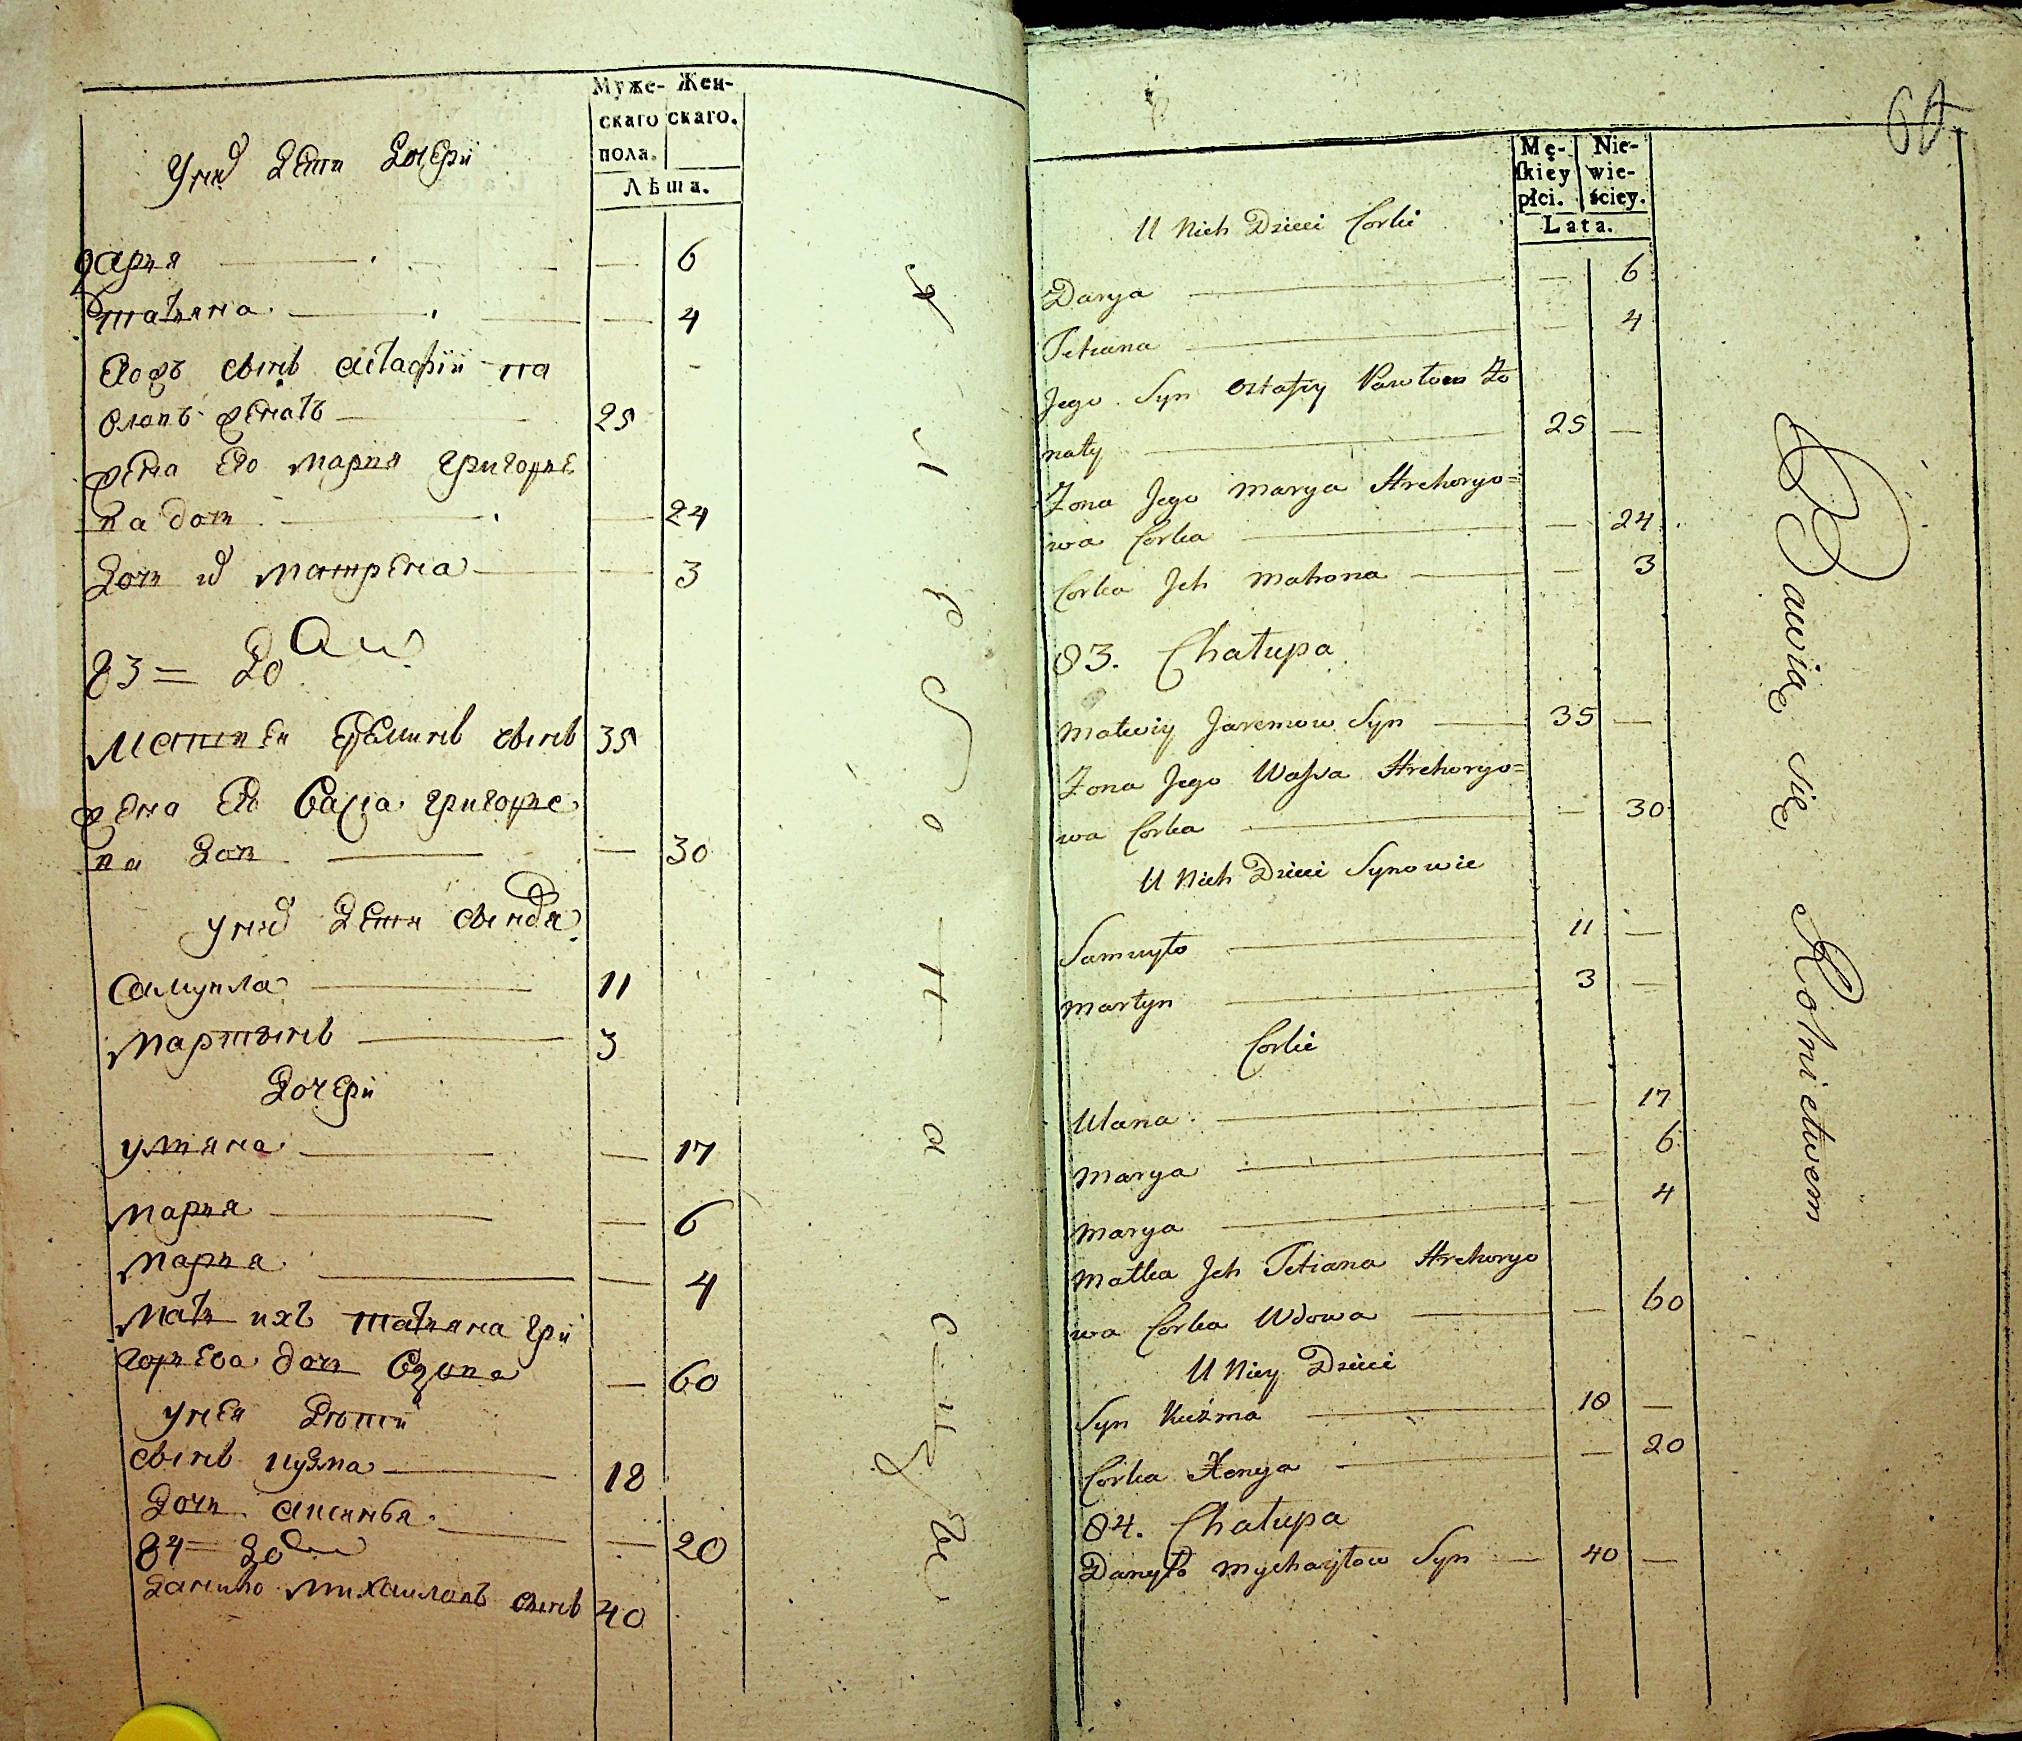 Муже- Жен-
скаго скаго.
пола.
Лѣта.
У них Дети Дочери
Дарья — 6
Татьяна — 4
Сынъ Астафии Па
вловъ женатъ — 25
жена Его Мария Григорье
ва дочь — 24
Дочь их Матрена — 3
83 = Дом
Матвеи Еремин сынъ 35
жена Его Васса Григорье
ва Дочь — 30
У них Дети сыновья
Самуила — 11
Мартынъ — 3
Дочери
Ульяна — 17
Марья — 6
Марья — 4
Мать ихъ Татьяна Гри
горьева дочь Вдова — 60
У неи Дети
сынъ Кузма — 18
Дочь Аксинья — 20
84 = Дом
Данило Михаиловъ сынъ 40
60
Mę- Nie-
skiey wie-
płci. ściey.
Lata.
U Nich Dzieci Corki
Darya — 6
Tetiana — 4
Jego Syn Ostafiy Pawłow Żo
naty — 25 —
Żona Jego Marya Hrehoryo=
wa Corka — 24
Corka Jch Matrona — 3
83. Chałupa
Matwiy Jaremow Syn — 35 —
Żona Jego Wassa Hrehoryo=
wa Corka — 30
U Nich Dzieci Synowie
Samuyło — 11 —
Martyn — 3 —
Corki
Ulana — 17
Marya — 6
Marya — 4
Matka Jch Tetiana Hrehoryo
wa Corka Wdowa — 60
U Niey Dzieci
Syn Kuźma — 18 —
Corka Xenya — 20
84. Chałupa
Danyło Mychayłow Syn — 40 —
Bawią się Rolnictwem